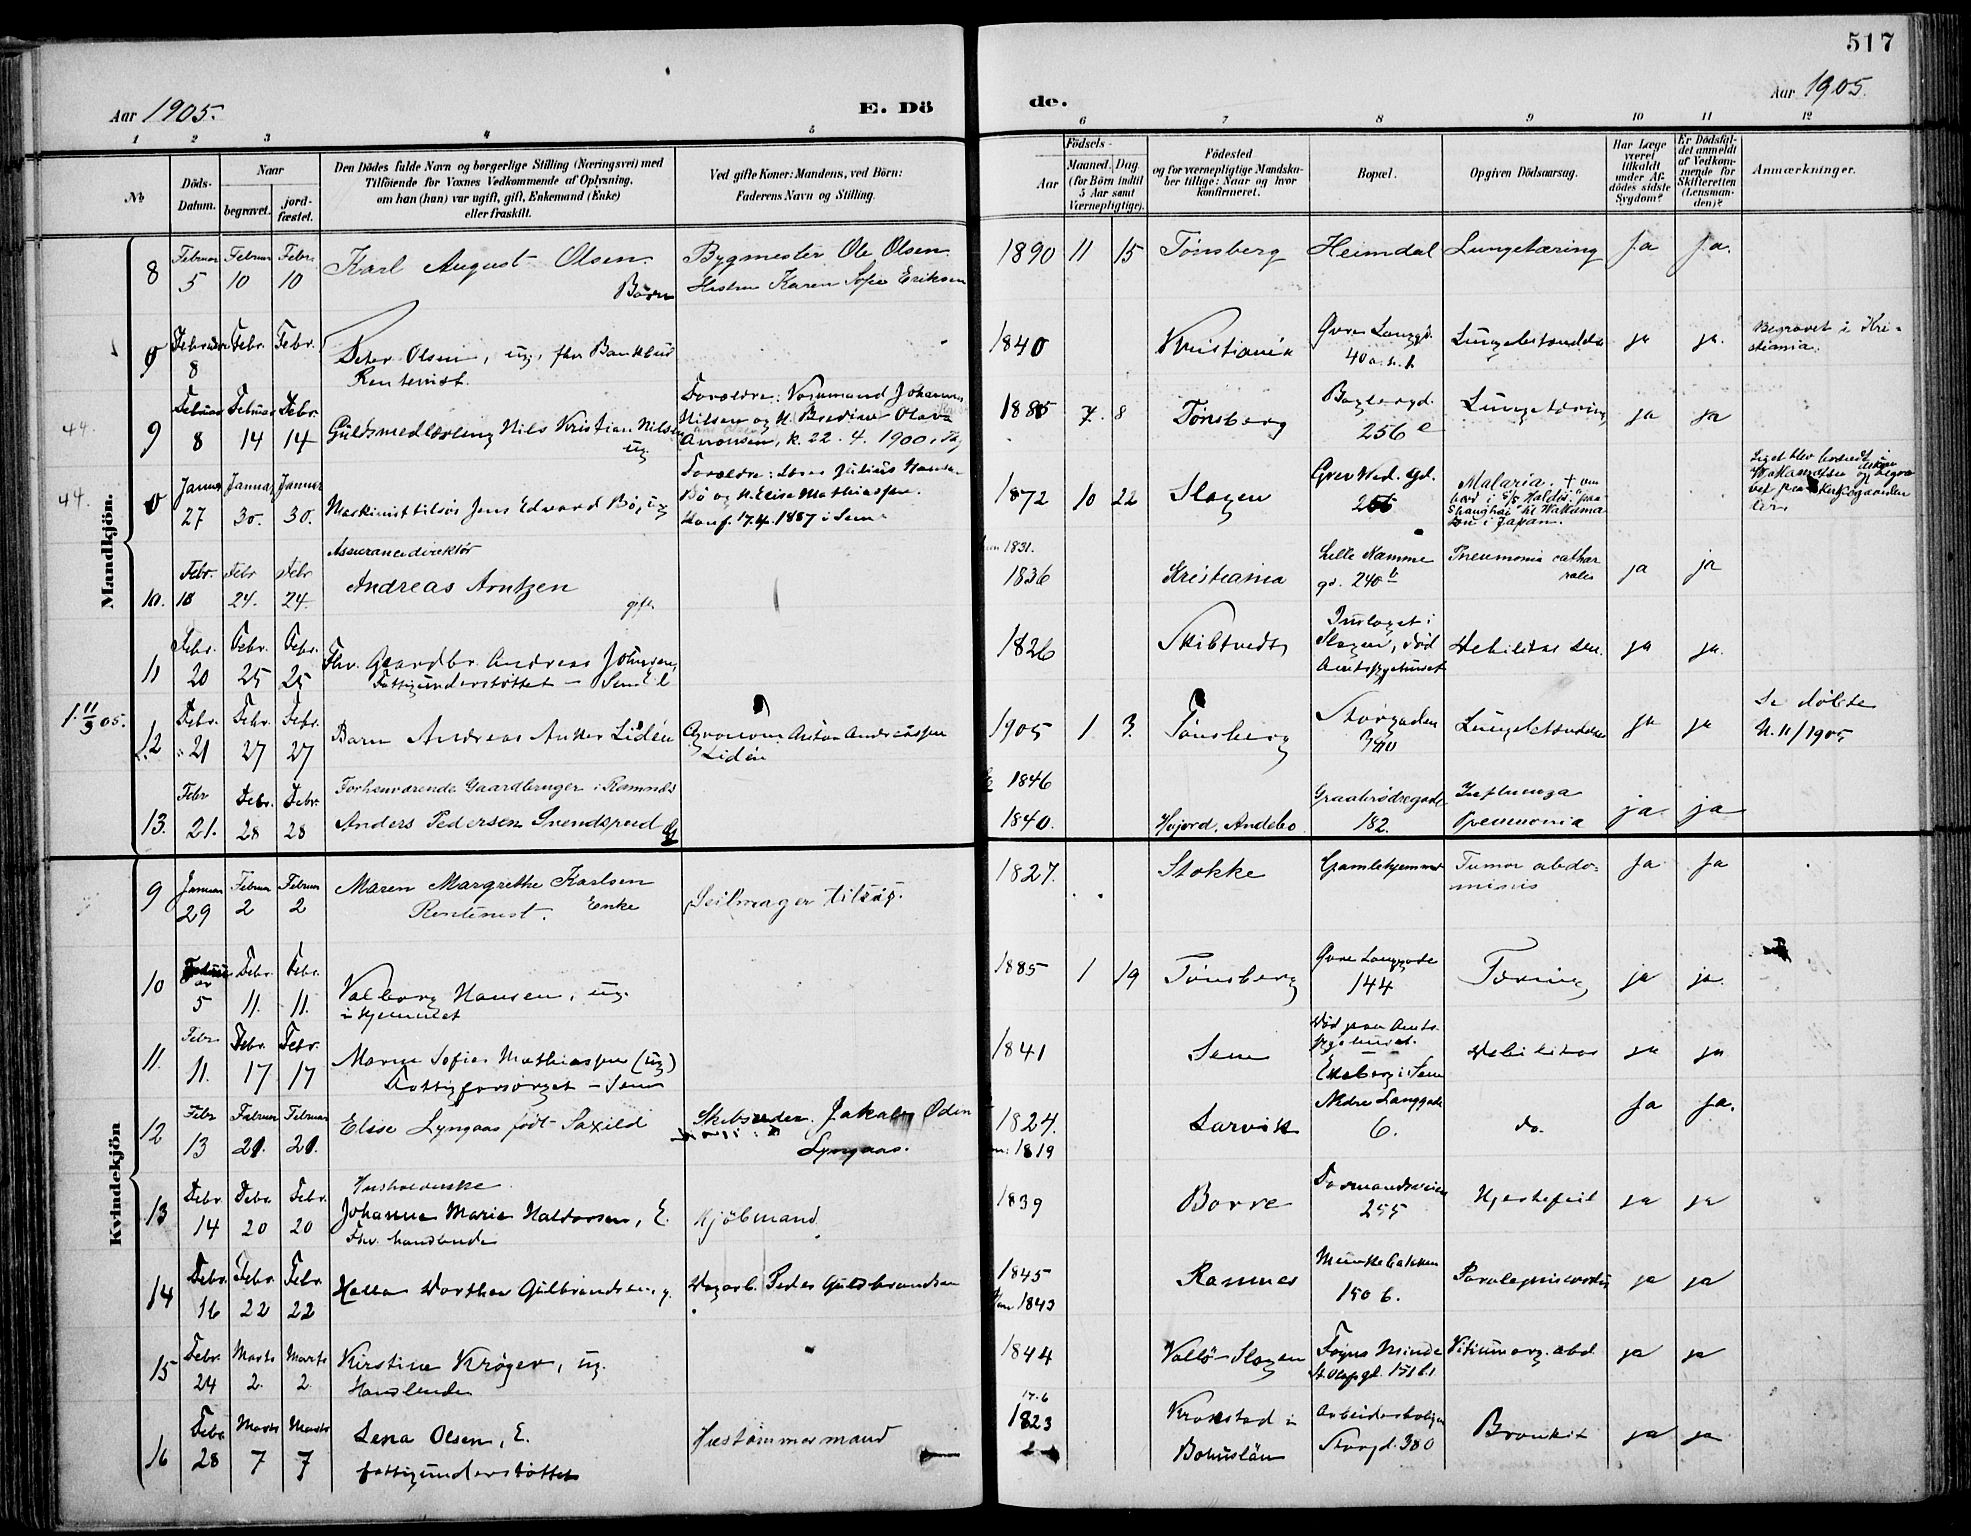 517
Aar 1905.
E. Dö
de.
Aar 1905.
1 2 3 4 5 6 7 8 9 10 11 12
№
Döds-Datum.
Naar
begravet.
jord-fæstet.
Den Dödes fulde Navn og borgerlige Stilling (Næringsvei) med
Tilföiende for Voxnes Vedkommende af Oplysning,
om han (hun) var ugift, gift, Enkemand (Enke)
eller fraskilt.
Ved gifte Koner: Mandens, ved Börn:
Faderens Navn og Stilling.
Födsels-
Aar
Maaned. Dag.
(for Börn indtil
5 Aar samt
Værnepligtige).
Födested
og for værnepligtige Mandska-
ber tillige: Naar og hvor
konfirmeret.
Bopæl.
Opgiven Dödsaarsag.
Har Læge
været
tilkaldt
under Af-
dödes sidste
Sygdom?
Er Dödsfal-
det anmeldt
af Vedkom-
mende for
Skifteretten
(Lensman-
den)?
Anmærkninger.
Mandkjön.
8 Februar 5 Februar 10 Febr. 10 Karl August Olsen. Barn
Bygmester Ole Olsen. Hustru Karen Sofie Eriksen
1890 11 15 Tønsberg Heimdal Lungetæring Ja Ja.
0 Februar 8 Febr. Febr. Peter Olsen, ug. fhv Bankbud
Rentenist.
1840 Kristiania Øvre Langgd. 40 Lungebetændelse ja ja. Begravet i Kri-
stiania.
44.
9 Februar 8 Februar 14 Febr. 14 Guldsmedlærling Nils Kristian Nilsen ug
Forældre: Formand Johannes
Nilsen og H. Bredine Olava
Aronsen, k. 22. 4. 1900 i Tbg
1885 7. 8 Tønsberg 256 e Lungetæring ja ja
44.
0 Januar 27 Januar 30. Januar 30. Maskinist tilsös Jens Edvard Bö, ug
Forældre: Julius Hansen
Bö og H. Elise Mathiassen.
Konf. 17.4. 1887 i Sem
1872 10 22 Slagen Grev Wed. gd. 266 Malaria. + om
bord i S/S "Haldis" paa
Shanghai til Wakama-
tsu i Japan.
Liget blev
Wakamatsu og begra-
vet paa Kirkegaarden
der.
10. Febr. 18 Febr 24. Febr 24. Assurancedirektør
Andreas Arntzen
gift
1831.
1836 Kristiania Lille Namme
gd. 240 b Pneumonia cathar
ralis ja ja
11 Febr. 20 Febr. 25 Febr. 25 Fhv. Gaardbr. Andreas Johnsen,
Fattigunderstöttet – Sem E.
1826 Skibtvedt Indlaget i
Slagen, död
Amtssygehuset Debilitas sen. ja ja.
1. 11/3 05.
12 Febr. 21 Febr. 27 Febr. 27 Barn Andreas Anker Lidén
Agronom Anton Andreassen
Lidén
1905 1 3. Tønsberg Storgaden
390 Lungebetændelse ja ja Se døbte
N. 11/1905
13. Febr 21. Febr. 28 Febr. 28 Forhenværende Gaardbruger i Ramnæs
Anders Pedersen Svendsrud
1846
1840. Høijord, Andebo Graabrødregade
182. Influenza
Pneumonia ja ja
Kvindekjön
9 Januar 29 Februar 2 Februar 2 Maren Margrethe Karlsen
Rentenist. Enke
Seilmager tilsøs.
1827. Stokke Gamlehjemmet Tumor abdo-
minis Ja Ja
10 Februar 5 Febr. 11. Febr. 11. Valborg Hansen, ug.
i Hjemmet
1885 1 19 Tønsberg Øvre Langgade
144 Tæring ja ja.
11. Febr. 11. Febr. 17 Febr. 17 Maren Sofie Mathiassen (ug)
Fattigforsørget – Sem
1841 Sem Død paa Amts-
sygehuset.
Ekeberg i Sem Debilitas ja ja
12 Febr 13 Februar 21. Februar 21. Elise Lyngaas født Saxild
Skibsreder. Jakob Oden
Lyngaas.
1824.
1819 Larvik Nedre Langgade
6. do. Ja Ja.
13 Febr. 14 Febr. 20 Febr. 20 Husholderske
Johanne Marie Haldorsen, E.
Fhv. handlende
Kjöbmand
1839 Borre Formandsveien
255 Hjertefeil ja ja
14 Febr. 16 Febr. 22 Febr. 22 Helle Dorthea Gulbrandsen, g.
Vegarb. Peder Guldbrandsen
1845
1843 Ramnes Munkebakken
150 b. ja ja
15 Febr. 24 Marts 2. Marts 2. Kirstine Krøger, ug.
Handlende
1844 Vallö – Slagen Foyns Minde
St. Olafsgd. 151 b 1 Vitium org. abd. ja ja
16 Febr 28 Marts 7 Marts 7 Lena Olsen, E.
fattigunderstøttet
Hustømmermand
17.6
1823 Krokstad i
Bohuslän Arbeiderboliger
Storgd. 380 Bronkit ja ja